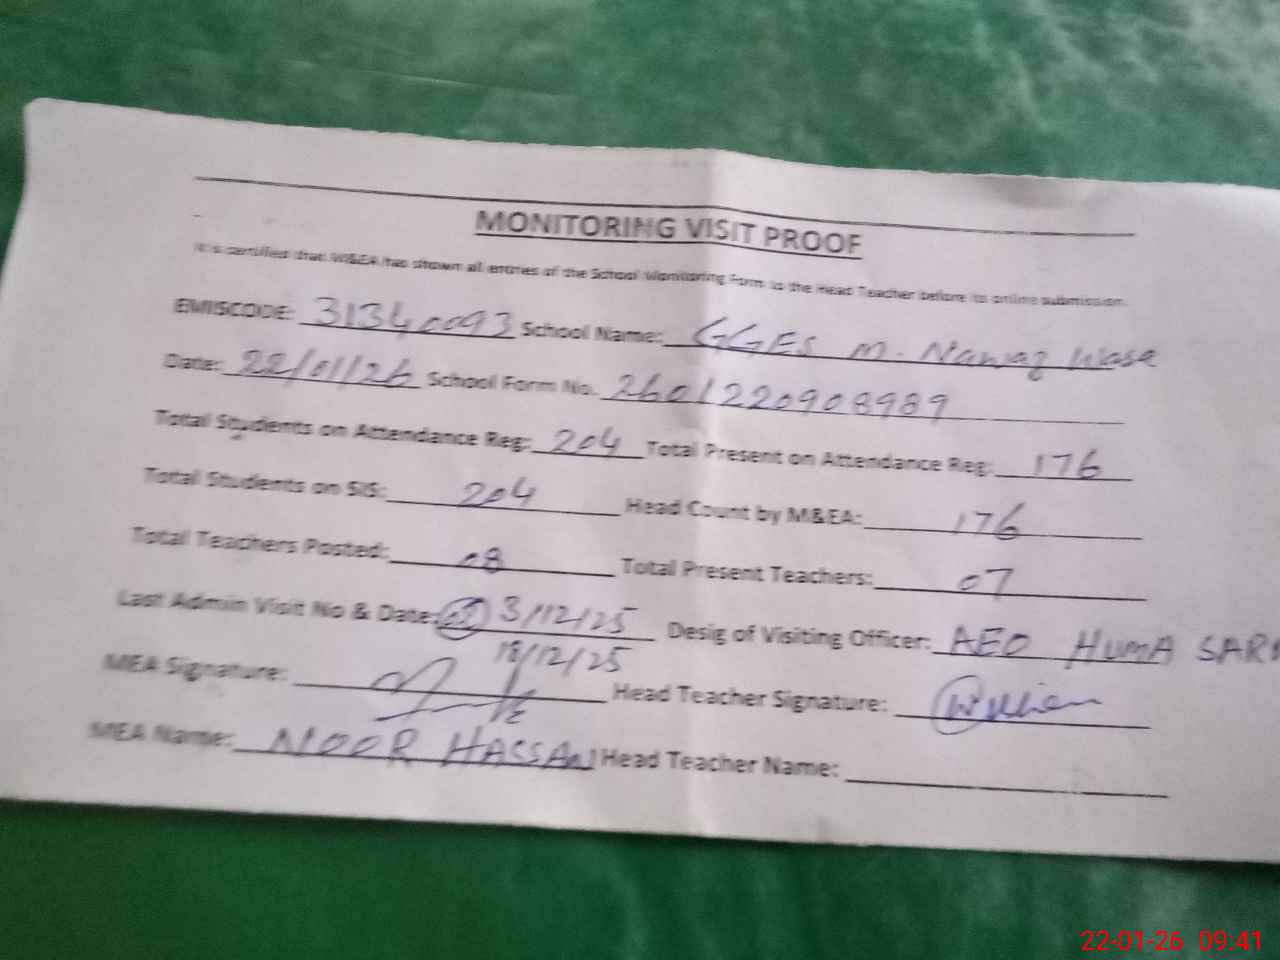 MONITORING VISIT PROOF
It is certified that M&EA has shown all entries of the School Monitoring Form to the Head Teacher before its online submission.
EMISCODE: 31340093 School Name: GGES M. Nawaz
Date: 22/01/26 School Form No. 2601220908989
Total Students on Attendance Reg: 204 Total Present on Attendance Reg: 176
Total Students on SIS: 204 Head Count by M&EA: 176
Total Teachers Posted: 08 Total Present Teachers: 07
Last Admin Visit No & Date: 3/12/25 Desig of Visiting Officer: AEO HUMA
18/12/25
MEA Signature: Head Teacher Signature:
MEA Name: NOOR HASSAN Head Teacher Name:
22-01-26 09:41